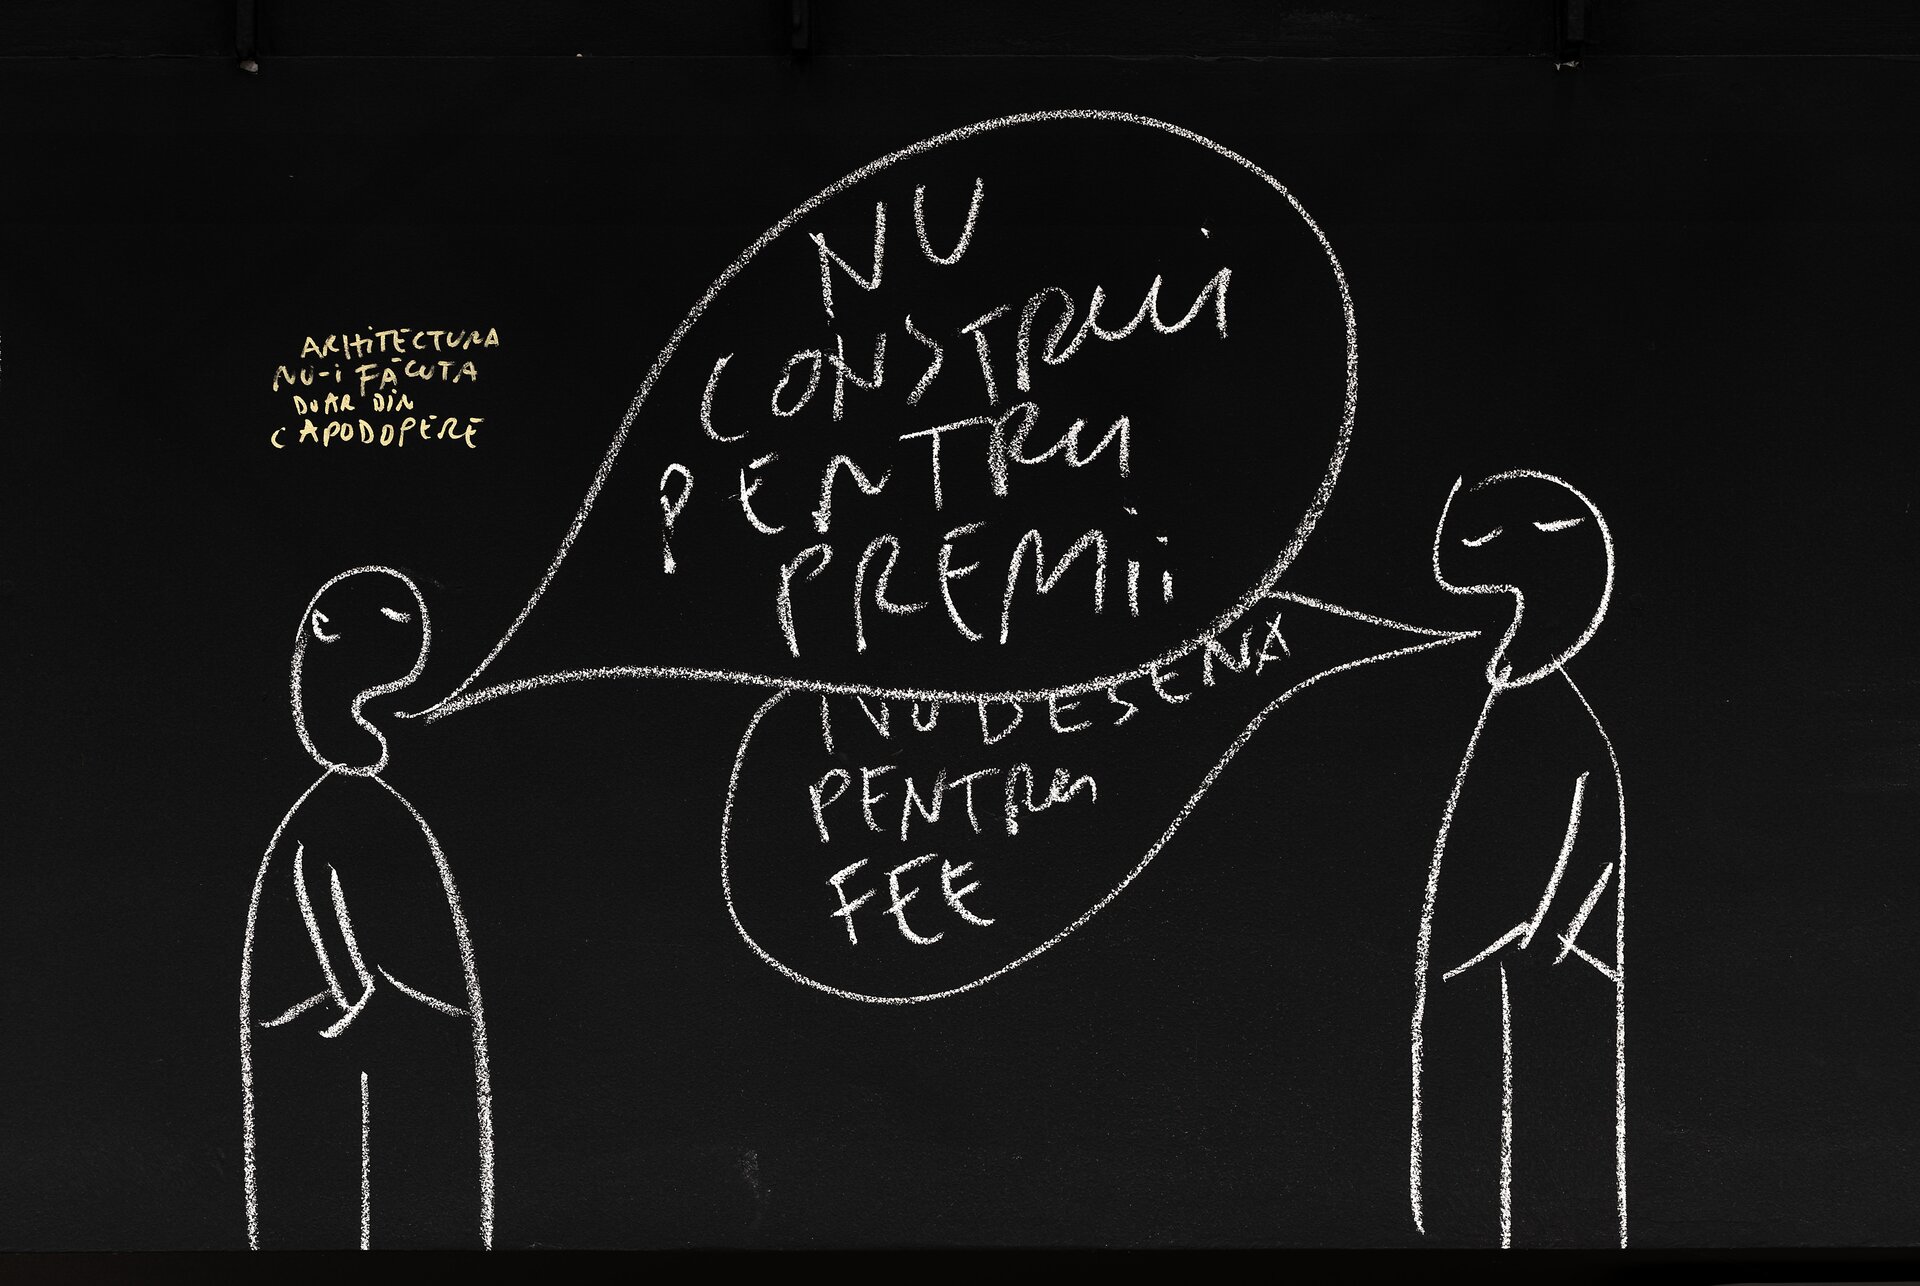 ARHITECTURA
NU-I FĂCUTA
DOAR DIN
CAPODOPERE
NU
CONSTRUI
PENTRU
PREMII
NU DESENA
PENTRU
FEE